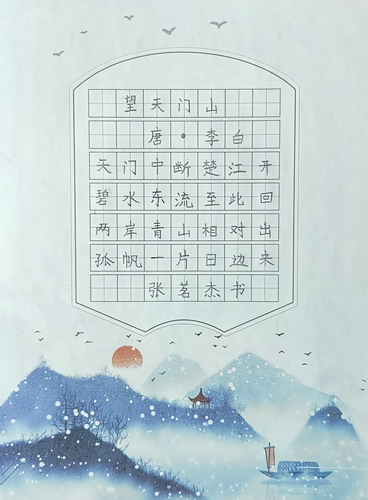 望天门山
唐·李白
天门中断楚江开
碧水东流至此回
两岸青山相对出
孤帆一片日边来
张茗杰书